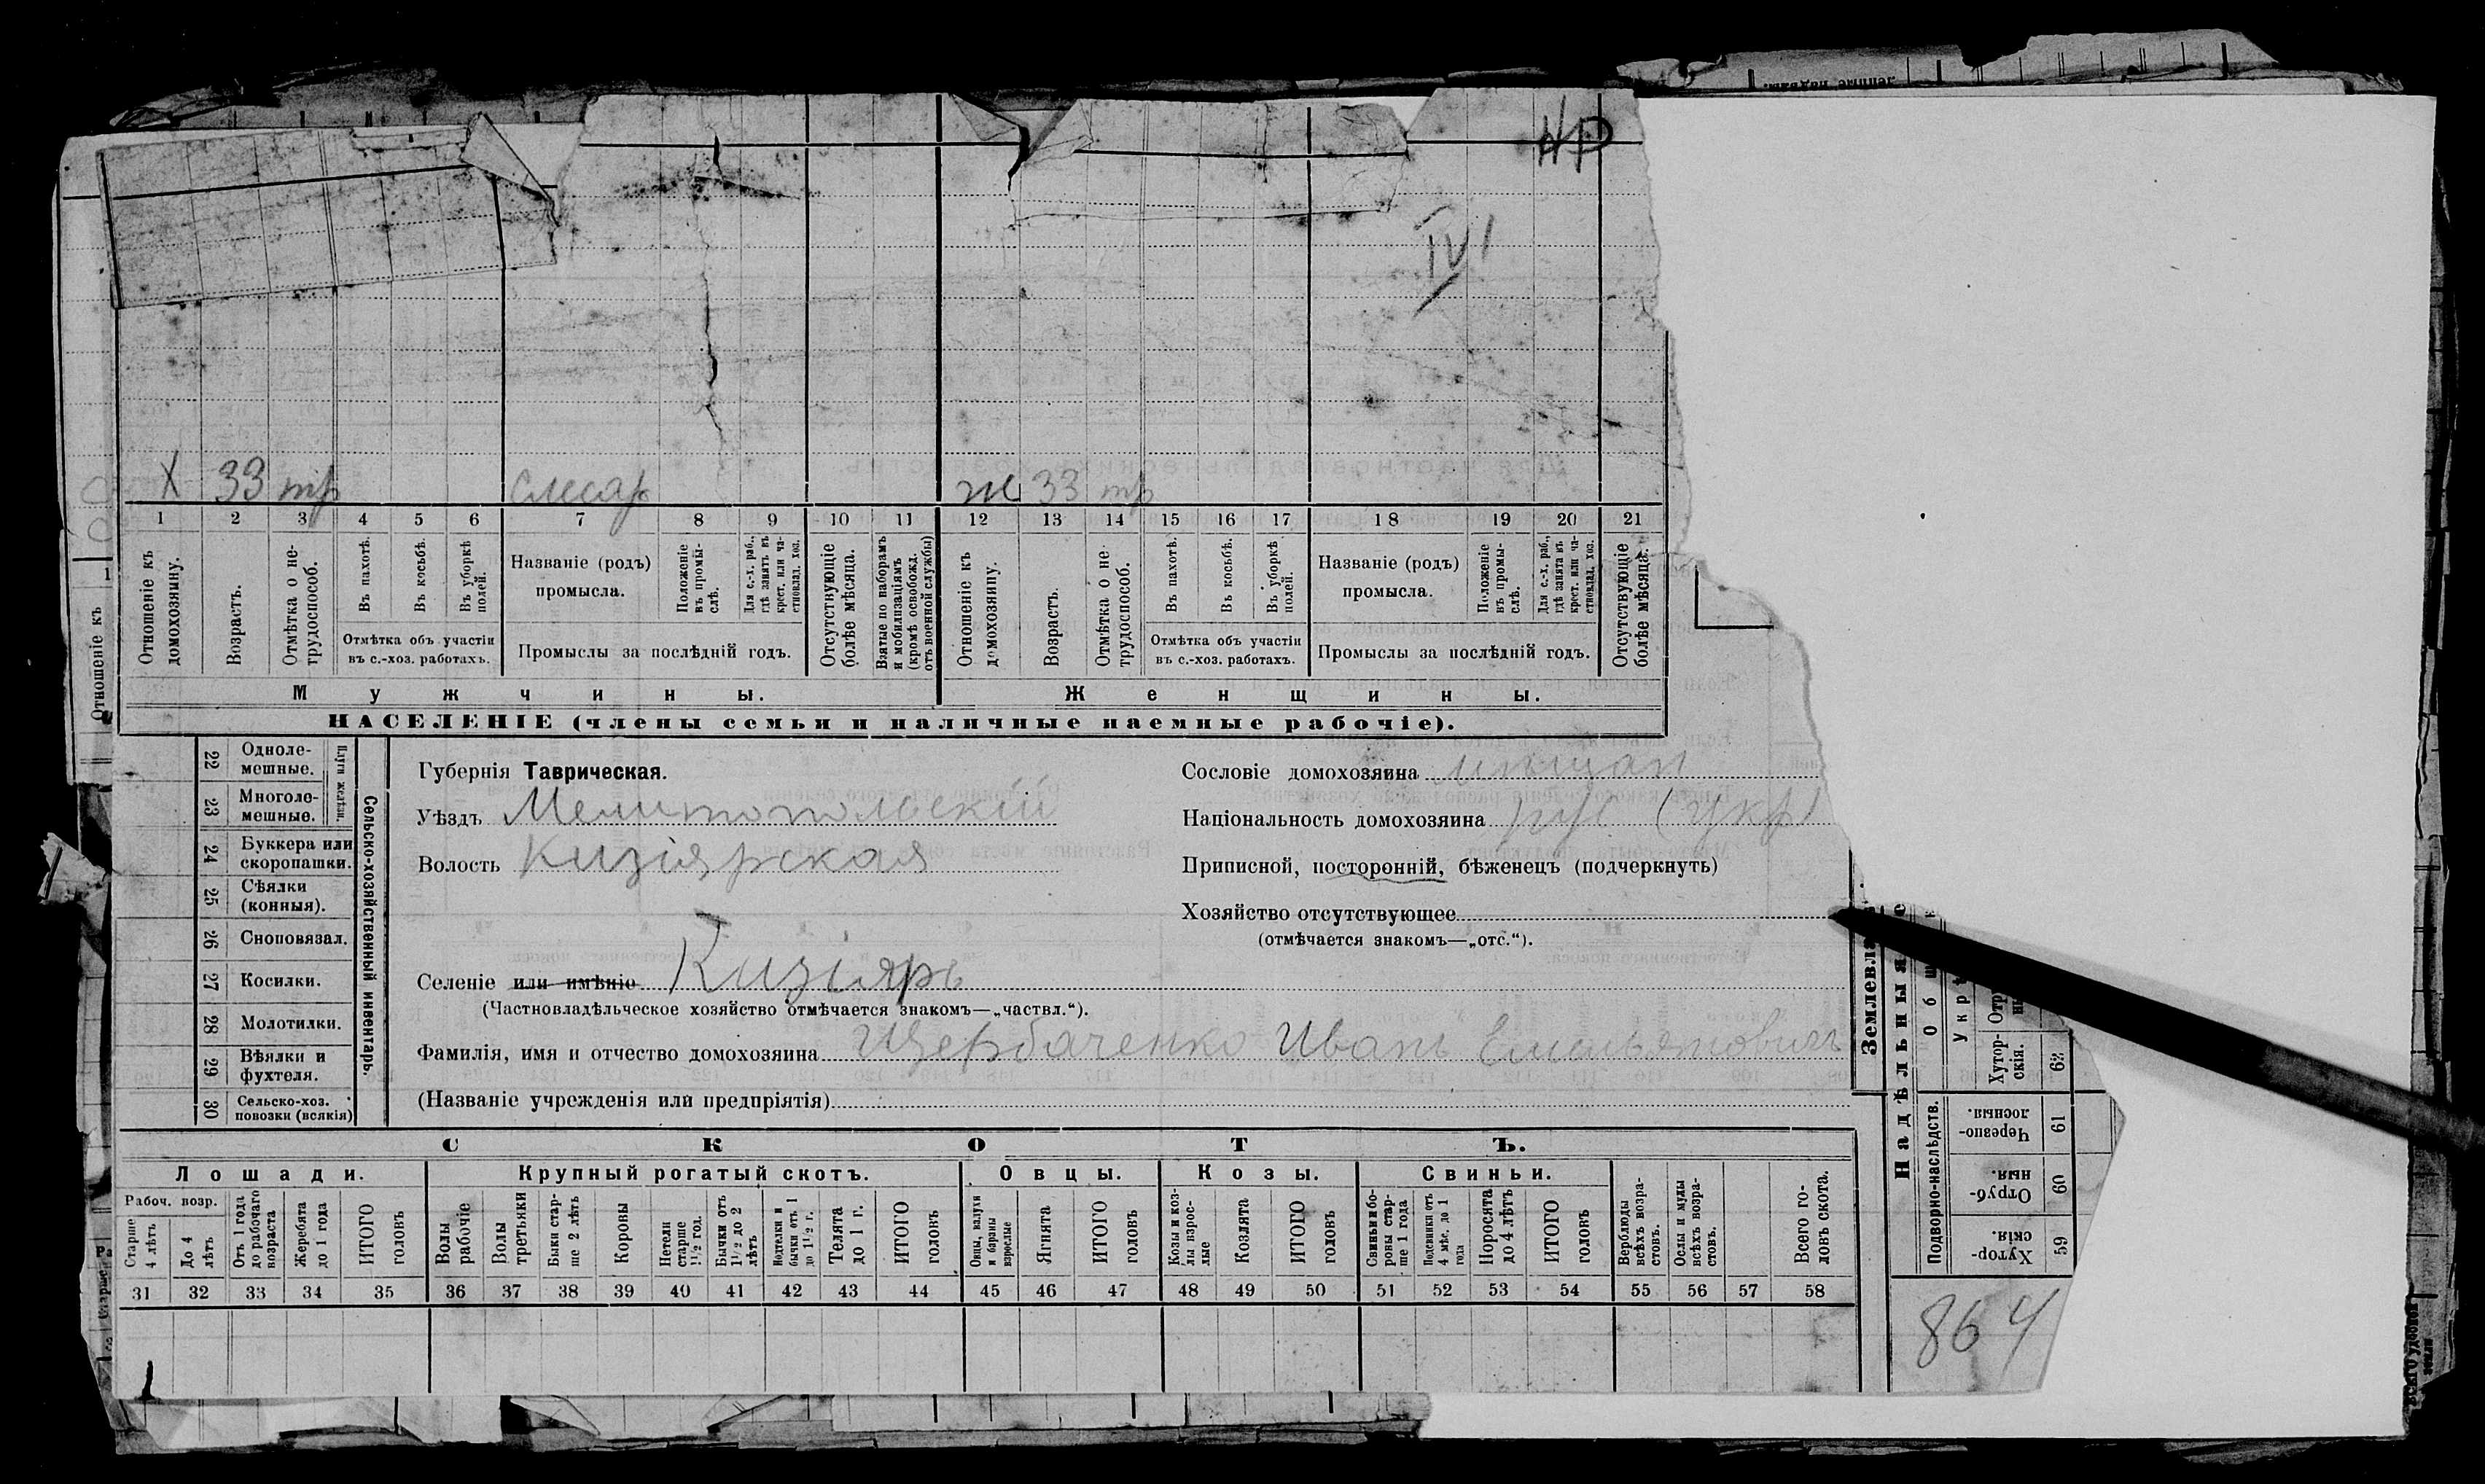 НР
IV 1
Х 33 тр слесар ж 33 тр
1 2 3 4 5 6 7 8 9 10 11 12 13 14 15 16 17 18 19 20 21
Отношеніе къ домохозяину.
Возрастъ.
Отмѣтка о нетрудоспособ.
Въ пахотѣ.
Въ косьбѣ.
Въ уборкѣ полей.
Отмѣтка объ участіи
въ с.-хоз. работахъ.
Названіе (родъ)
промысла.
Положеніе въ промыслѣ.
Для с.-х. раб., гдѣ занятъ въ крест. или частновлад. хоз.
Промыслы за послѣдній годъ.
Отсутствующіе болѣе мѣсяца.
Взятые по наборамъ и мобилизаціямъ (кромѣ освобожд. отъ военной службы)
Отношеніе къ домохозяину.
Возрастъ.
Отмѣтка о нетрудоспособ.
Въ пахотѣ.
Въ косьбѣ.
Въ уборкѣ полей.
Отмѣтка объ участіи
въ с.-хоз. работахъ.
Названіе (родъ)
промысла.
Положеніе въ промыслѣ.
Для с.-х. раб., гдѣ занята въ крест. или частновлад. хоз.
Промыслы за послѣдній годъ.
Отсутствующіе болѣе мѣсяца.
Мужчины. Женщины.
НАСЕЛЕНІЕ (члены семьи и наличные наемные рабочіе).
22 Одноле-
мешные.
23 Многоле-
мешные.
Плуги желѣзн.
24 Буккера или
скоропашки.
25 Сѣялки
(конныя).
26 Сноповязал.
27 Косилки.
28 Молотилки.
29 Вѣялки и
фухтеля.
30 Сельско-хоз.
повозки (всякія)
Сельско-хозяйственный инвентарь.
Губернія Таврическая.
Уѣздъ Мелитопольскій
Волость Кизіярская
Селеніе или имѣніе Кизіяръ
(Частновладѣльческое хозяйство отмѣчается знакомъ—„частвл.“).
Фамилія, имя и отчество домохозяина Щербаченко Иванъ Емельяновичъ
(Названіе учрежденія или предпріятія)
Сословіе домохозяина мѣщан
Національность домохозяина рус (укр)
Приписной, посторонній, бѣженецъ (подчеркнуть)
Хозяйство отсутствующее
(отмѣчается знакомъ—„отс.“).
СКОТЪ.
Лошади. Крупный рогатый скотъ. Овцы. Козы. Свиньи.
Рабоч. возр.
Старше 4 лѣтъ
До 4 лѣтъ
Отъ 1 года до рабочаго возраста
Жеребята до 1 года
ИТОГО головъ
Волы рабочіе
Волы третьяки
Быки старше 2 лѣтъ
Коровы
Нетели старше 1½ год.
Бычки отъ 1½ до 2 лѣтъ
Подтелки и бычки отъ 1 до 1½ г.
Телята до 1 г.
ИТОГО головъ
Овцы, валухи и бараны взрослые
Ягнята
ИТОГО головъ
Козы и козлы взрослые
Козлята
ИТОГО головъ
Свиньи и боровы старше 1 года
Подсвинки отъ 4 мѣс. до 1 года
Поросята до 4 лѣтъ
ИТОГО головъ
Верблюды всѣхъ возрастовъ.
Ослы и мулы всѣхъ возрастовъ.
Всего головъ скота.
31 32 33 34 35 36 37 38 39 40 41 42 43 44 45 46 47 48 49 50 51 52 53 54 55 56 57 58
Надѣльныя
Подворно-наслѣдств.
Хутор-
скія. 62
Черезпо-
лосныя. 61
Отруб-
ныя. 60
Хутор-
скія. 59
864
Отношеніе къ